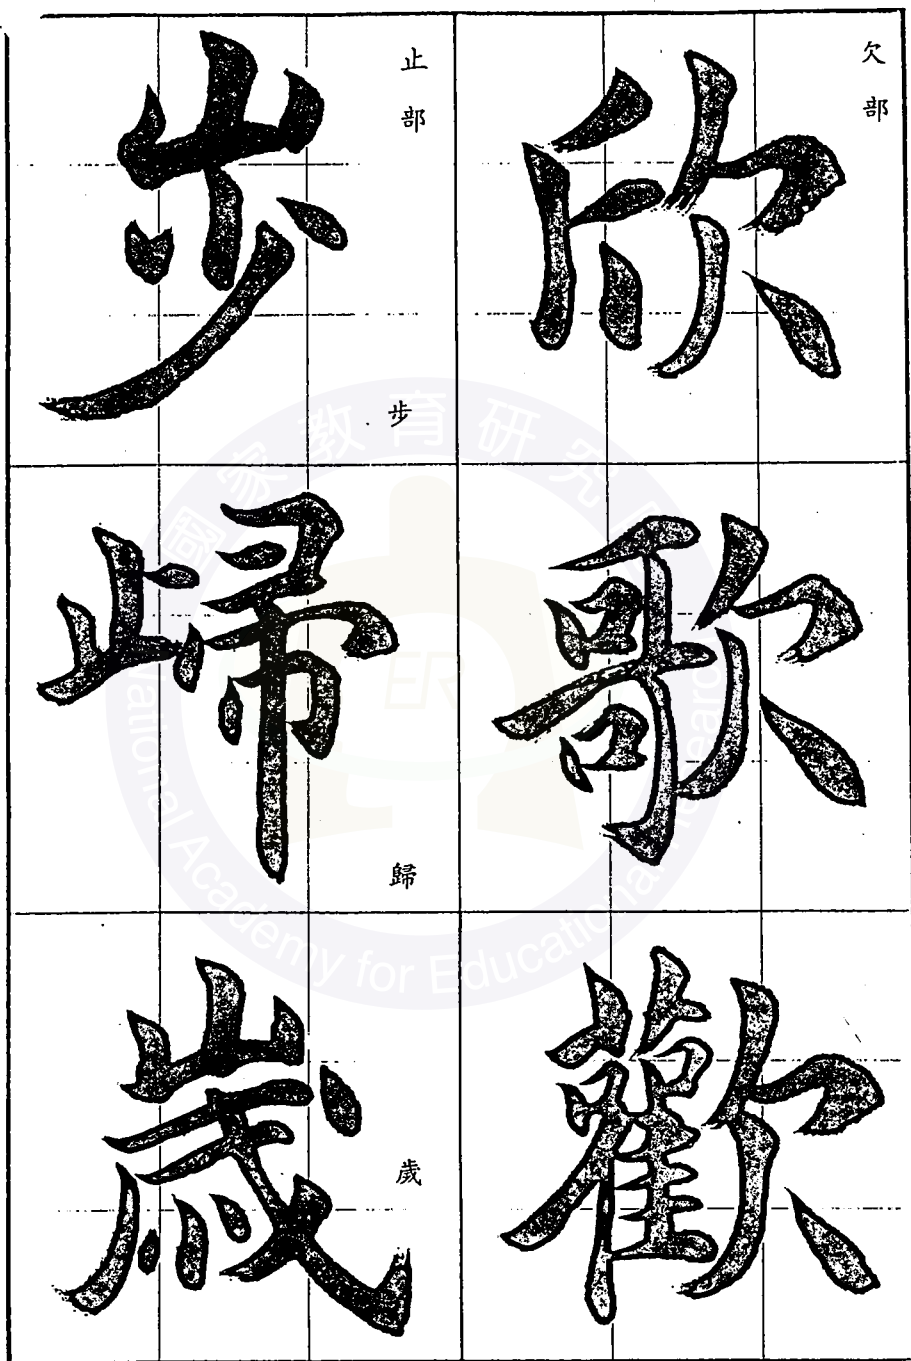 欠部
欣
歌
歡
止部
步
步
歸
歸
歲
歲
國家教育研究院
National Academy for Educational Research